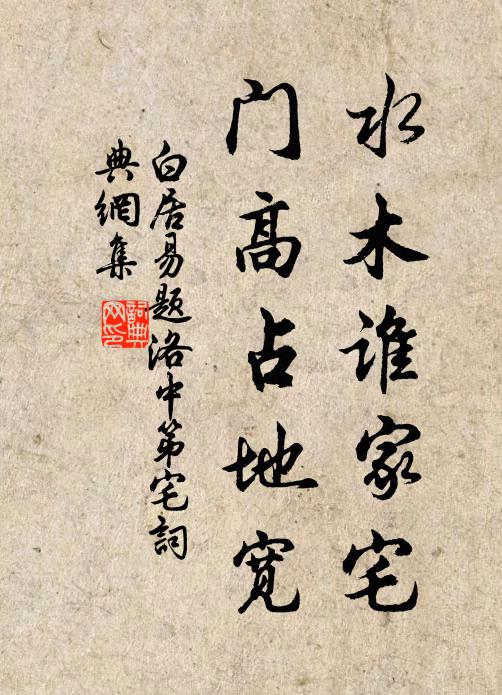 水木谁家宅
门高占地宽
白居易题洛中第宅詞
典網集
詞典网印